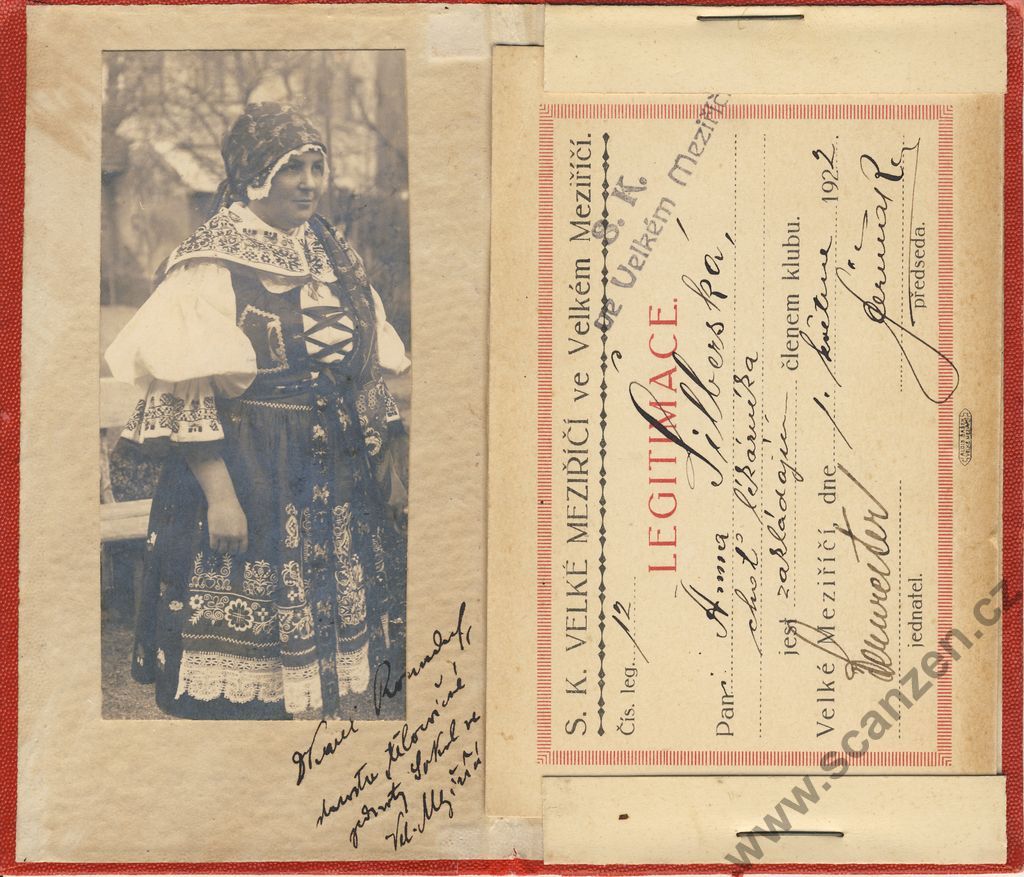 Dr Karel
starosta tělocvičné
jednoty Sokol ve
Vel. Meziříčí
S. K. VELKÉ MEZIŘÍČÍ ve Velkém Meziříčí.
Čís. leg. 12
S. K.
ve Velkém Meziříčí
LEGITIMACE.
Paní Anna Silberská,
choť lékárníka
jest zakládajícím členem klubu.
Velké Meziříčí, dne 1. května 1922.
jednatel.
předseda.
www.scanzen.cz